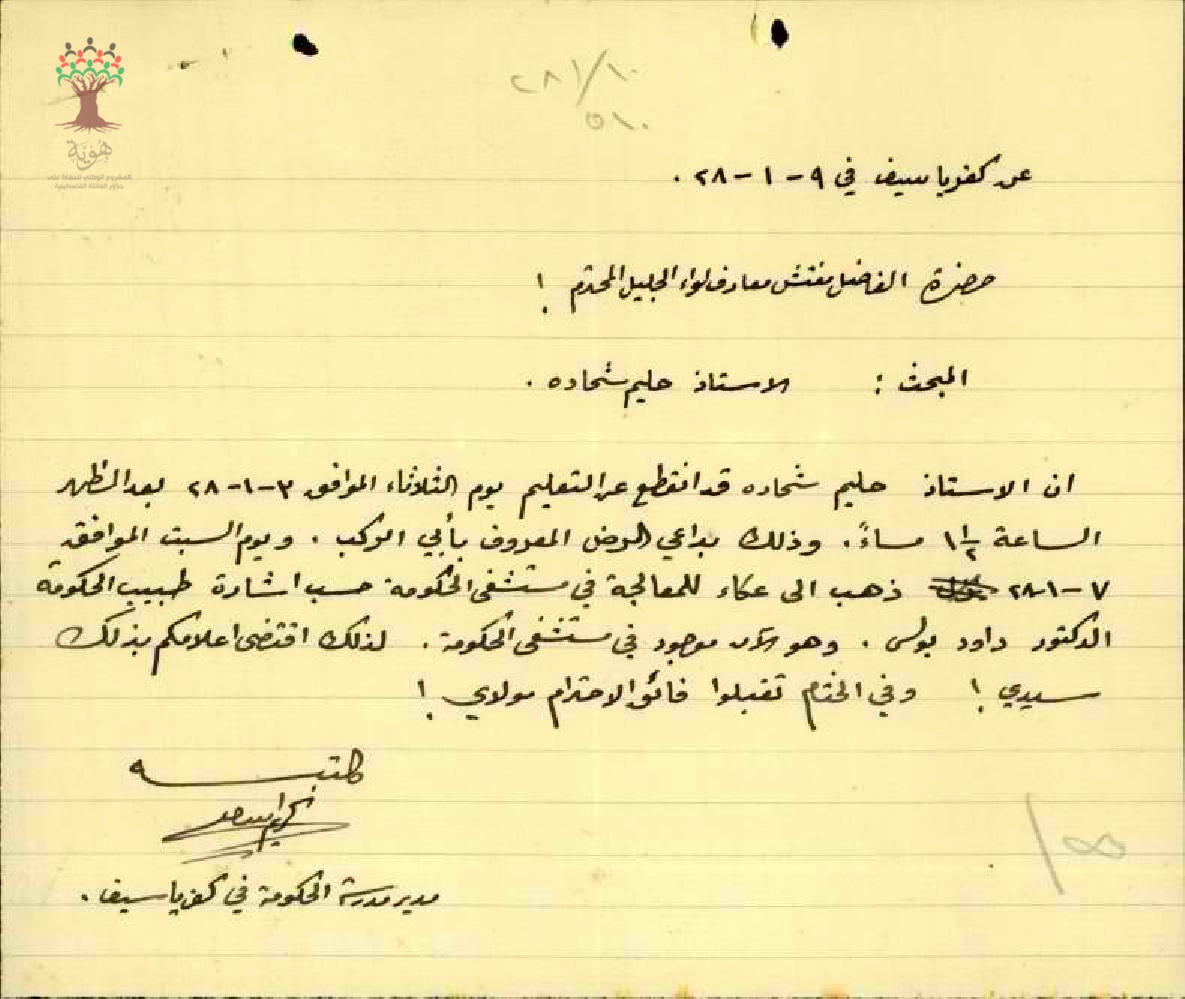 ٢٨١/١٠
٥١٠
هُوِيَّة
المشروع الوطني للحفاظ على
جذور العائلة الفلسطينية
عن كفرياسيف في ٩-١-٢٨.
حضرة الفاضل مفتش معارف لواء الجليل المحترم !
المبحث : الاستاذ حليم شحاده .
ان الاستاذ حليم شحاده قد انقطع عن التعليم يوم الثلاثاء الموافق ٣-١-٢٨ بعد الظهر
الساعة ١½ مساءً. وذلك بداعي المرض المعروف بأبي الركب . ويوم السبت الموافق
٧-١-٢٨ ذهب الى عكاء للمعالجة في مستشفى الحكومة حسب اشارة طبيب الحكومة
الدكتور داود بولس . وهو الآن موجود في مستشفى الحكومة . لذلك اقتضى اعلامكم بذلك
سيدي ! وفي الختام تقبلوا فائق الاحترام مولاي !
كتبه
مدير مدرسة الحكومة في كفرياسيف .